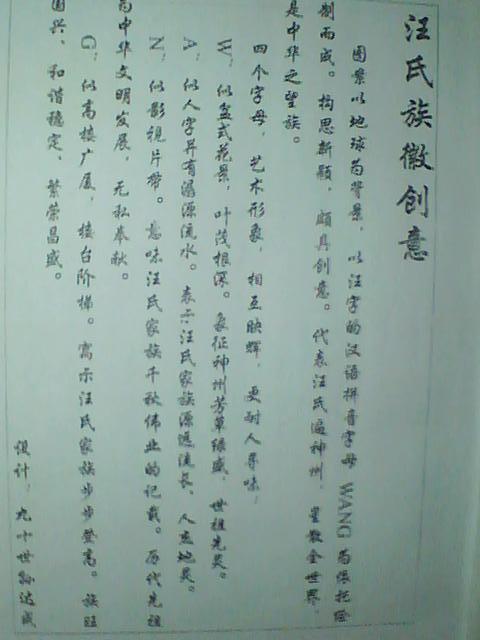 汪氏族徽创意
图案以地球为背景，以汪字的汉语拼音字母WANG为
制而成。构思新颖，颇具创意。代表汪氏遍神州，星散全世界。
是中华之望族。
四个字母，艺术形象，相互映辉，更耐人寻味，
W：似盆式花景，叶茂根深。象征神州芳草绿盛，世祖先灵。
A：似人字并有溯源流水。表示汪氏家族源远流长，人杰地灵。
N：似影视片带。意味汪氏家族千秋伟业的记载。历代先祖
为中华文明发展，无私奉献。
G：似高楼广厦，楼台阶梯。寓示汪氏家族步步登高。族旺
国兴、和谐稳定、繁荣昌盛。
设计：九十世孙达